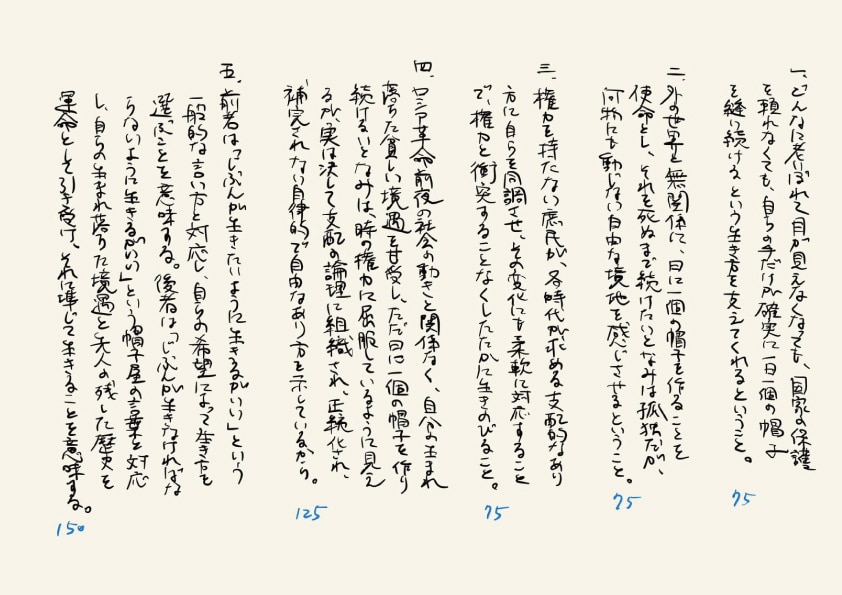 一、どんなに老いぼれて目が見えなくなっても、国家の保護
を頼れなくても、自らの手だけが確実に一日一個の帽子
を縫い続けるという生き方を支えてくれるということ。
75
二、外の世界と無関係に、日に一個の帽子を作ることを
使命とし、それを死ぬまで続けたいとなみは孤独だが、
何物にも動じない自由な境地を感じさせるということ。
75
三、権力を持たない庶民が、各時代が求める支配的なあり
方に自らを同調させ、その変化にも柔軟に対応すること
で、権力と衝突することなくしたたかに生きのびること。
75
四、ロシア革命前夜の社会の動きと関係なく、自分の生まれ
落ちた貧しい境遇を甘受し、ただ日に一個の帽子を作り
続けるいとなみは、時の権力に屈服しているように見え
るが、実は決して支配の論理に組織され、正統化され、
補完されない自律的で自由なあり方を示しているから。
125
五、前者は「じぶんが生きたいように生きるがいい」という
一般的な言い方と対応し、自らの希望によって生き方を
選ぶことを意味する。後者は「じぶんが生きなければな
らないように生きるがいい」という帽子屋の言葉と対応
し、自らの生まれ落ちた境遇と先人の残した歴史を
運命として引き受け、それに準じて生きることを意味する。
150